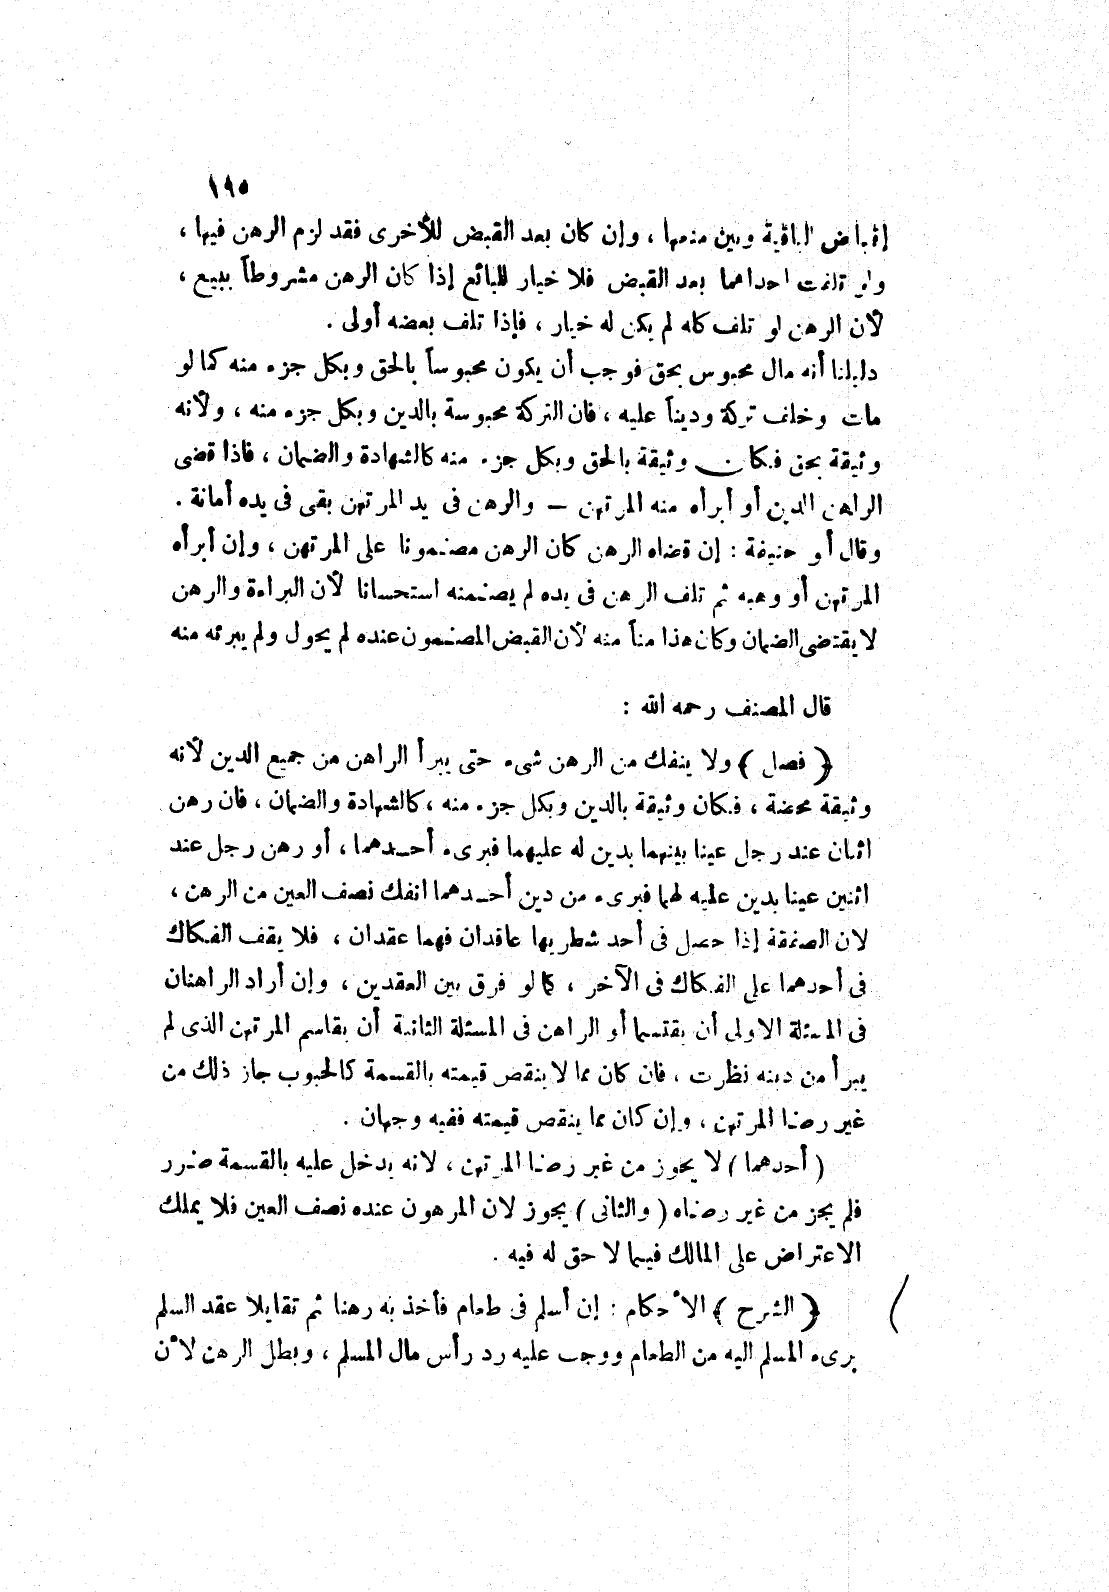 ١٩٥
إقباض الباقية وبين منعها ، وإن كان بعد القبض للأخرى فقد لزم الرهن فيها ،
ولو تلفت احداهما بعد القبض فلا خيار للبائع إذا كان الرهن مشروطاً ببيع ،
لأن الرهن لو تلف كله لم يكن له خيار ، فإذا تلف بعضه أولى .
دليلنا أنه مال محبوس بحق فوجب أن يكون محبوساً بالحق وبكل جزء منه كما لو
مات وخلف تركة وديناً عليه ، فان التركة محبوسة بالدين وبكل جزء منه ، ولأنه
وثيقة بحق فكان وثيقة بالحق وبكل جزء منه كالشهادة والضمان ، فاذا قضى
الراهن الدين أو أبرأه منه المرتهن – والرهن فى يد المرتهن بقى فى يده أمانة .
وقال أو حنيفة : إن قضاه الرهن كان الرهن مضمونا على المرتهن ، وإن أبرأه
المرتهن أو وهبه ثم تلف الرهن فى يده لم يضمنه استحسانا لأن البراءة والرهن
لا يقتضى الضمان وكان هذا مناً منه لأن القبض المضمون عنده لم يحول ولم يبرئه منه
قال المصنف رحمه الله :
﴿ فصل ﴾ ولا ينفك من الرهن شىء حتى يبرأ الراهن من جميع الدين لأنه
وثيقة محضة ، فكان وثيقة بالدين وبكل جزء منه ، كالشهادة والضمان ، فان رهن
اثنان عند رجل عينا بينهما بدين له عليهما فبرىء أحدهما ، أو رهن رجل عند
اثنين عينا بدين عليه لهما فبرىء من دين أحدهما انفك نصف العين من الرهن ،
لان الصفقة إذا حصل فى أحد شطريها عاقدان فهما عقدان ، فلا يقف الفكاك
فى أحدهما على الفكاك فى الآخر ، كما لو فرق بين العقدين ، وإن أراد الراهنان
فى المسئلة الاولى أن يقتسما أو الراهن فى المسئلة الثانية أن يقاسم المرتهن الذى لم
يبرأ من دينه نظرت ، فان كان مما لا ينقص قيمته بالقسمة كالحبوب جاز ذلك من
غير رضا المرتهن ، وإن كان مما ينقص قيمته ففيه وجهان .
( أحدهما ) لا يجوز من غير رضا المرتهن ، لانه يدخل عليه بالقسمة ضرر
فلم يجز من غير رضاه ( والثانى ) يجوز لان المرهون عنده نصف العين فلا يملك
الاعتراض على المالك فيما لا حق له فيه .
﴿ الشرح ﴾ الأحكام : إن أسلم فى طعام فأخذ به رهنا ثم تقايلا عقد السلم
برىء المسلم اليه من الطعام ووجب عليه رد رأس مال المسلم ، وبطل الرهن لأن